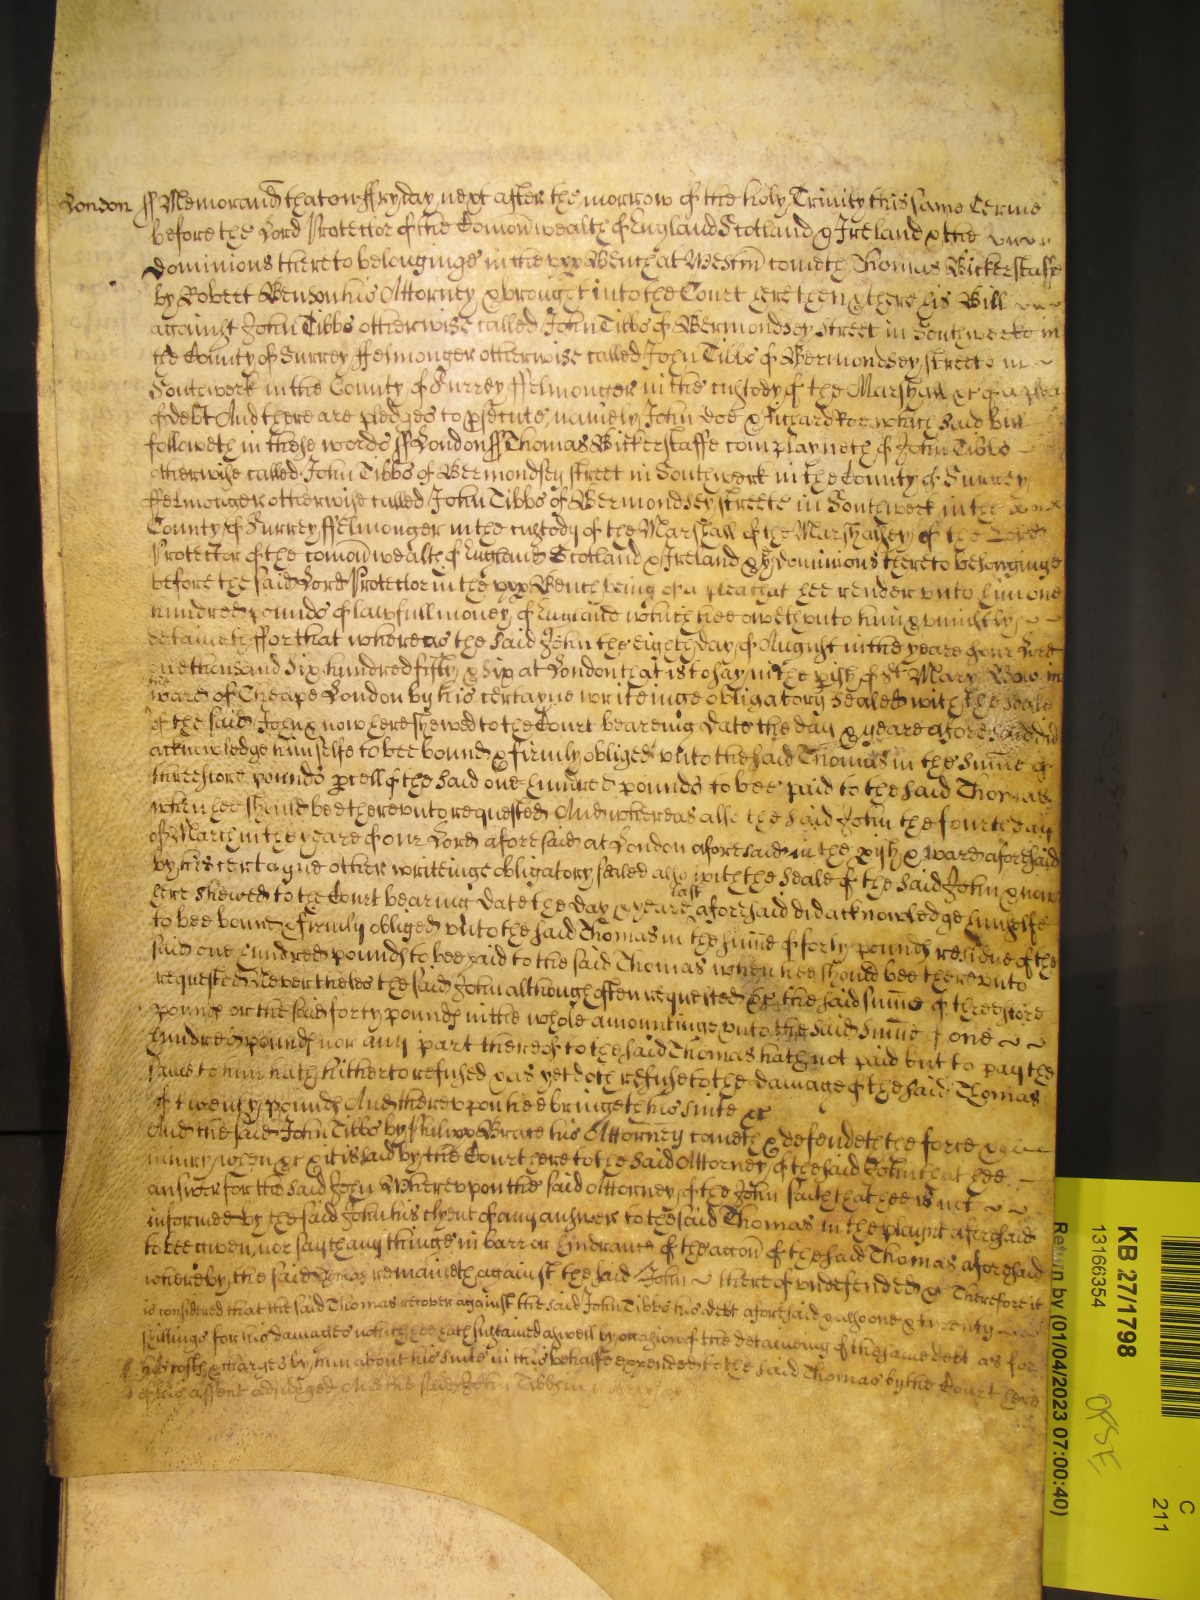 London ss Memorand that on ffryday next after the morrow of the holy Trinity this same Terme
before the Lord Protector of the Comonwealth of England Scotland & Ireland & the
dominions thereto belonginge in the vpp Bench at Westm cometh Thomas Bickerstaffe
by Robert Benson his Attorney & brought into the Court here then & there his Bill
against John Tibbs otherwise called John Tibbs of Bermondsey Street in Southwerke in
the County of Surrey ffelmonger otherwise called John Tibbs of Bermondsey streete in
Southwerk in the County of Surrey ffelmonger in the custody of the Marshall &c of a plea
of debt And there are pledges to psecute namely John Doe & Richard Roe which said Bill
followeth in these words ss London ss Thomas Bickerstaffe complayneth of John Tibbs
otherwise called John Tibbs of Bermondsey street in Southwerk in the County of Surrey
ffelmonger otherwise called John Tibbs of Bermondsey streete in Southwerk in the
County of Surrey ffelmonger in the custody of the Marshall of the Marshalsey of the Lord
Protector of the comonwealth of England Scotland & Ireland & ye dominions thereto belonginge
before the said Lord Protector in the vpp Bench being of a plea that hee render vnto him one
hundred pounds of lawfull money of England which hee oweth vnto him & vniustly
detaineth ffor that whereas the said John the Eighth day of August in the yeare of our Lord
one thousand six hundred fifty & six at London that is to say in the pish of St Mary Bow in
ward of Cheape London by his certayne writeinge obligatory sealed with the seale
of the said John & now here shewed to the Court beareing date the day & yeare aforesaid did
acknowledge himselfe to bee bound & firmly obliged vnto the said Thomas in the sume of
threescore pounds pcell of the said one hundred pounds to bee paid to the said Thomas
when hee should bee therevnto requested And whereas also the said John the fourth day
of March in the yeare of our Lord aforesaid at London aforesaid in the pish & ward aforesaid
by his certayne other writeinge obligatory sealed also with the seale of the said John & now
here shewed to the Court bearing date the day & yeare last aforesaid did acknowledge himselfe
to bee bound & firmly obliged vnto the said Thomas in the sume of forty pounds residue of the
said one hundred pounds to bee paid to the said Thomas when hee should bee therevnto
requested Nevertheles the said John although often requested &c the said sume of threescore
pounds or the said forty pounds in the whole amountinge vnto the said sume of one
hundred pounds nor any part thereof to the said Thomas hath not paid but to pay the
same to him hath hitherto refused & as yet doth refuse to the damage of the said Thomas
of twenty pounds And therevpon hee bringeth his suite &c
And the said John Tibbs by Philipp Brace his Attorney cometh & defendeth the force &
iniury when &c & it is said by the Court here to the said Attorney of the said John that hee
answer for the said John Wherevpon the said Attorney of the John saith that hee is not
informed by the said John his clyent of any answer to the said Thomas in the plaint aforesaid
to bee given nor say thany thinge in barr or hindrance of the accon of the said Thomas aforesaid
whereby the said Thomas remaineth against the said John thereof vndefended & Therefore it
is considered that the said Thomas recover against the said John Tibbs his debt aforesaid & also one & twenty
shillings for his damages which hee hath sustained aswell by occasion of the detaineing of the same debt as for
his costs & charges by him about his suite in this behalfe expended to the said Thomas by the Court here
of his assent adiudged And the said John Tibbs in
KB 27/1798
13166354
Return by (01/04/2023 07:00:40)
C
211